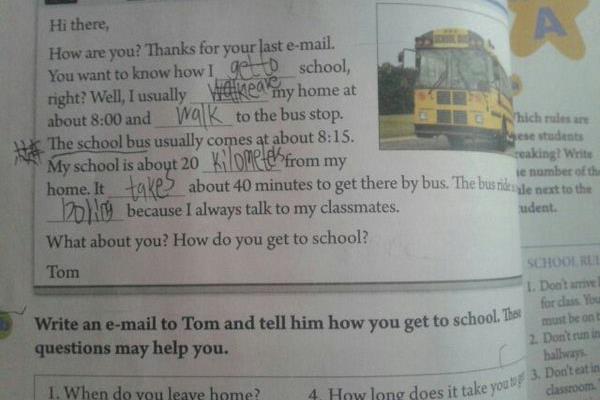 Hi there,
How are you? Thanks for your last e-mail.
You want to know how I get to school,
right? Well, I usually my home at
about 8:00 and walk to the bus stop.
The school bus usually comes at about 8:15.
My school is about 20 kilometers from my
home. It takes about 40 minutes to get there by bus. The bus ride
because I always talk to my classmates.
What about you? How do you get to school?
Tom
SCHOOL BUS
A
Write an e-mail to Tom and tell him how you get to school. These
questions may help you.
1. When do you leave home?
4. How long does it take you to get
Which rules are
these students
breaking? Write
number of the
next to the
student.
SCHOOL RUL
1. Don't arrive l
for class. You
must be on t
2. Don't run in
hallways.
3. Don't eat in
classroom.